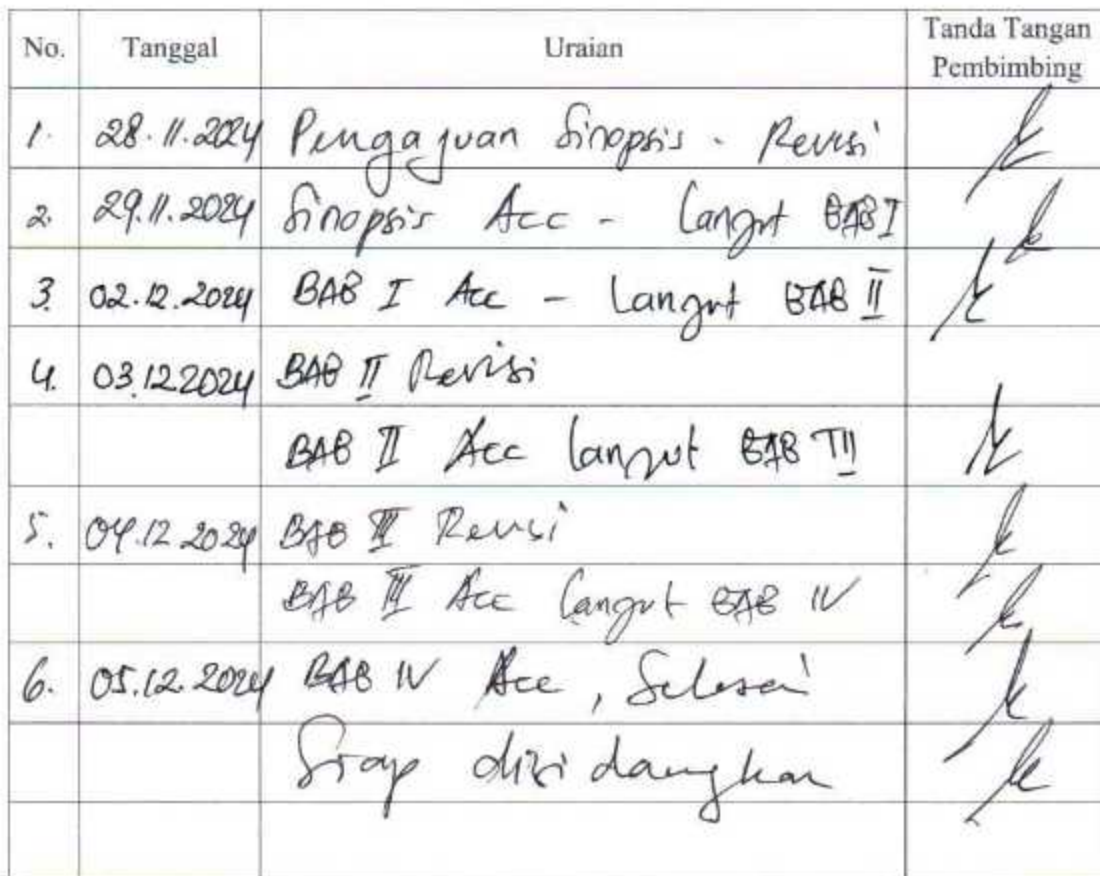 No. Tanggal Uraian Tanda Tangan Pembimbing
1. 28.11.2024 Pengajuan Sinopsis - Revisi
2. 29.11.2024 Sinopsis Acc - Lanjut BAB I
3. 02.12.2024 BAB I Acc - Lanjut BAB II
4. 03.12.2024 BAB II Revisi
BAB II Acc lanjut BAB III
5. 04.12.2024 BAB III Revisi
BAB III Acc lanjut BAB IV
6. 05.12.2024 BAB IV Acc, Selesai
Siap disidangkan